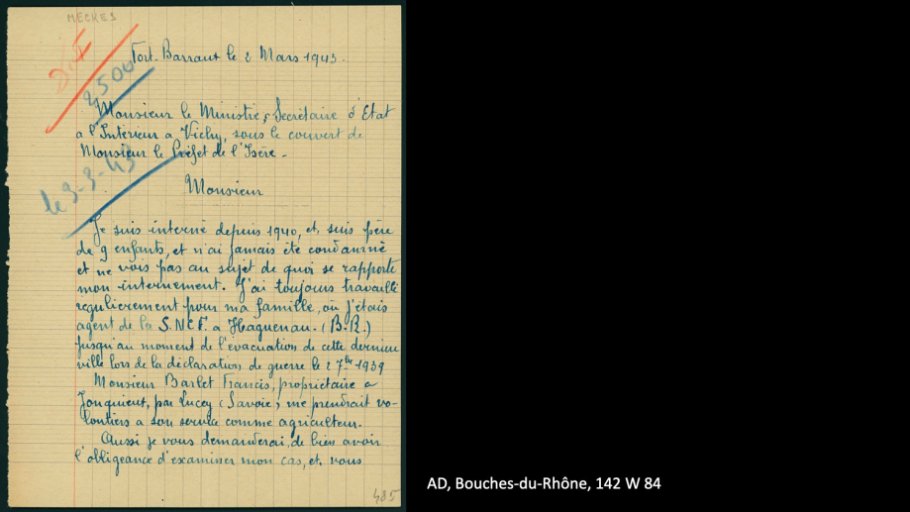 MECKES
2500
Fort. Barraut le 2 Mars 1943.
Monsieur le Ministre, Secrétaire d'Etat
a l'Intérieur a Vichy, sous le couvert de
Monsieur le Préfet de l'Isère.
le 9-3-43
Monsieur
Je suis interné depuis 1940, et, suis père
de 9 enfants, et n'ai jamais été condamné
et ne vois pas au sujet de quoi se rapporte
mon internement. J'ai toujours travaillé
régulierement pour ma famille, où j'étais
agent de la S.N.C.F. a Haguenau. (B.R.)
jusqu'au moment de l'évacuation de cette dernière
ville lors de la déclaration de guerre le 2 7bre 1939
Monsieur Barlet Francis, propriétaire a
Jonquieut, par Lucey (Savoie) me prendrait vo-
lontiers a son service comme agriculteur.
Aussi je vous demanderai, de bien avoir
l'obligeance d'examiner mon cas, et vous
485
AD, Bouches-du-Rhône, 142 W 84